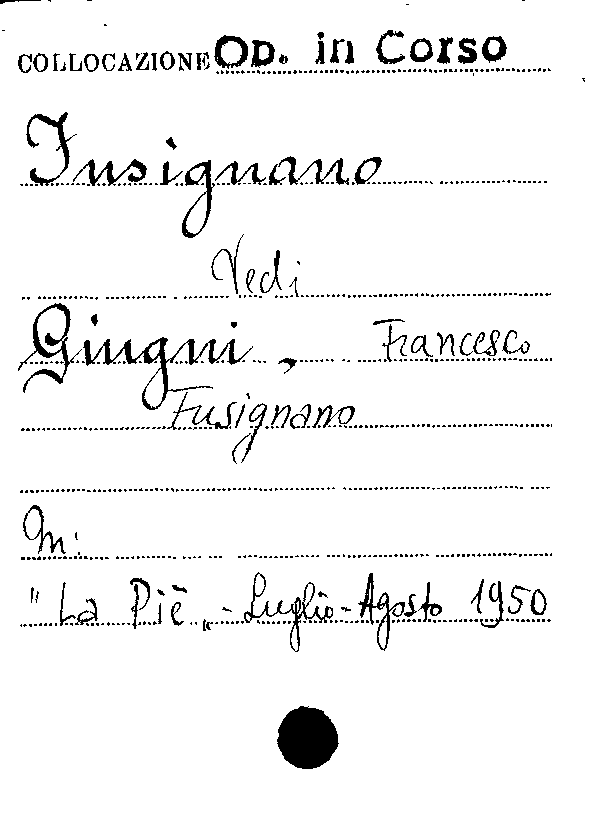 COLLOCAZIONE OD. in Corso
Fusignano
Vedi
Giugni, Francesco
Fusignano
In:
"La Piè„ - Luglio - Agosto 1950